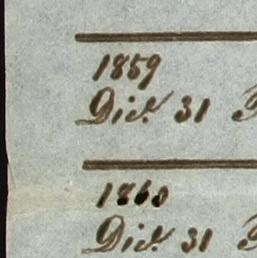 1859
Dec. 31
1860
Dec. 31